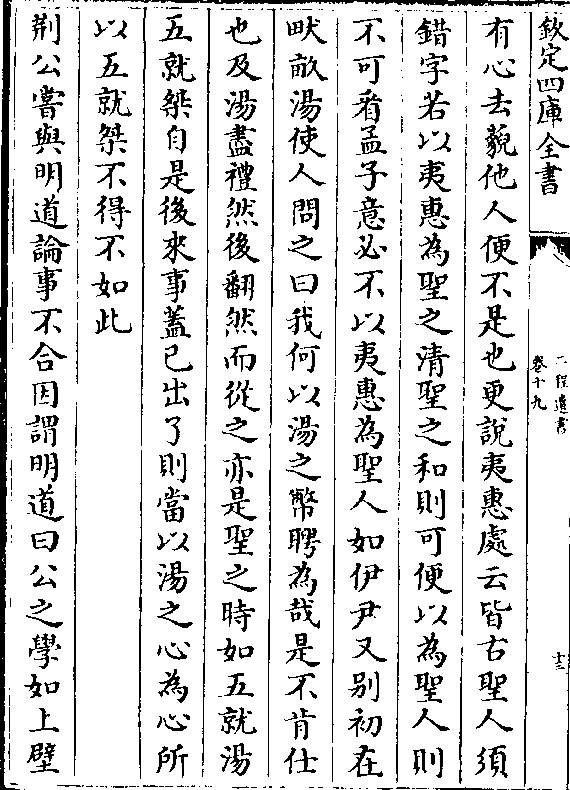 欽定四庫全書
二程遺書
卷十九
十三
有心去藐他人便不是也更說夷惠處云皆古聖人須
錯字若以夷惠為聖之清聖之和則可便以為聖人則
不可看孟子意必不以夷惠為聖人如伊尹又别初在
畎畝湯使人問之曰我何以湯之幣聘為哉是不肯仕
也及湯盡禮然後翻然而從之亦是聖之時如五就湯
五就桀自是後來事蓋已出了則當以湯之心為心所
以五就桀不得不如此
荆公嘗與明道論事不合因謂明道曰公之學如上壁